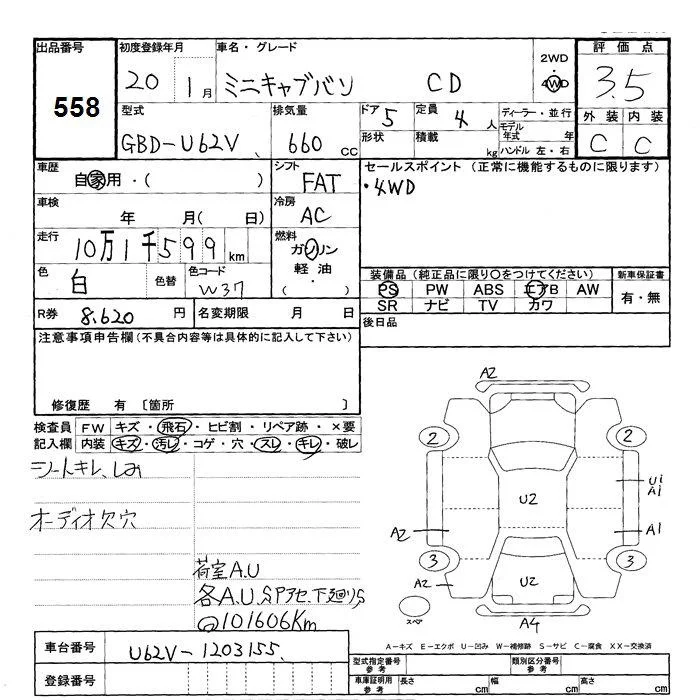 出品番号
558
初度登録年月
20 1月
車名・グレード
ミニキャブバン CD
2WD
・
4WD
評価点
3.5
外装 内装
C C
型式
GBD-U62V
排気量
660 cc
ドア 5
定員 4 人
形状
積載 kg
ディーラー・並行
モデル年式 年
ハンドル 左・右
車歴
自家用・( )
シフト
FAT
セールスポイント (正常に機能するものに限ります)
・4WD
車検
年 月( 日)
冷房
AC
走行
10万1千599 km
燃料
ガソリン
軽油・
( )
色
白
色替
色コード
W37
装備品 (純正品に限り○をつけてください)
PS PW ABS エアB AW
SR ナビ TV カワ
新車保証書
有・無
R券 8,620 円
名変期限 月 日
後日品
注意事項申告欄(不具合内容等は具体的に記入して下さい)
修復歴 有 〔箇所 〕
検査員記入欄
FW キズ・飛石・ヒビ割・リペア跡・×要
内装 キズ・汚レ・コゲ・穴・スレ・キレ・破レ
シートキレ、しみ
オーディオ欠穴
荷室A.U
各A.U.S
@101606Km
A2
2 2
U2
U1
A1
A2
A1
3 3
A2
U2
スペア
A4
A-キズ E-エクボ U-凹み W-補修跡 S-サビ C-腐食 XX-交換済
車台番号
U62V-1203155
登録番号
型式指定番号
参考
類別区分番号
参考
車庫証明用
参考
長さ cm 幅 cm 高さ cm